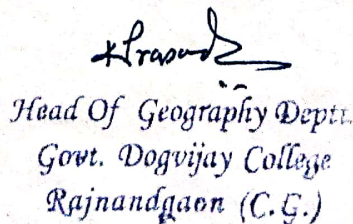 KPrasad
Head Of Geography Deptt.
Govt. Dogvijay College
Rajnandgaon (C.G.)